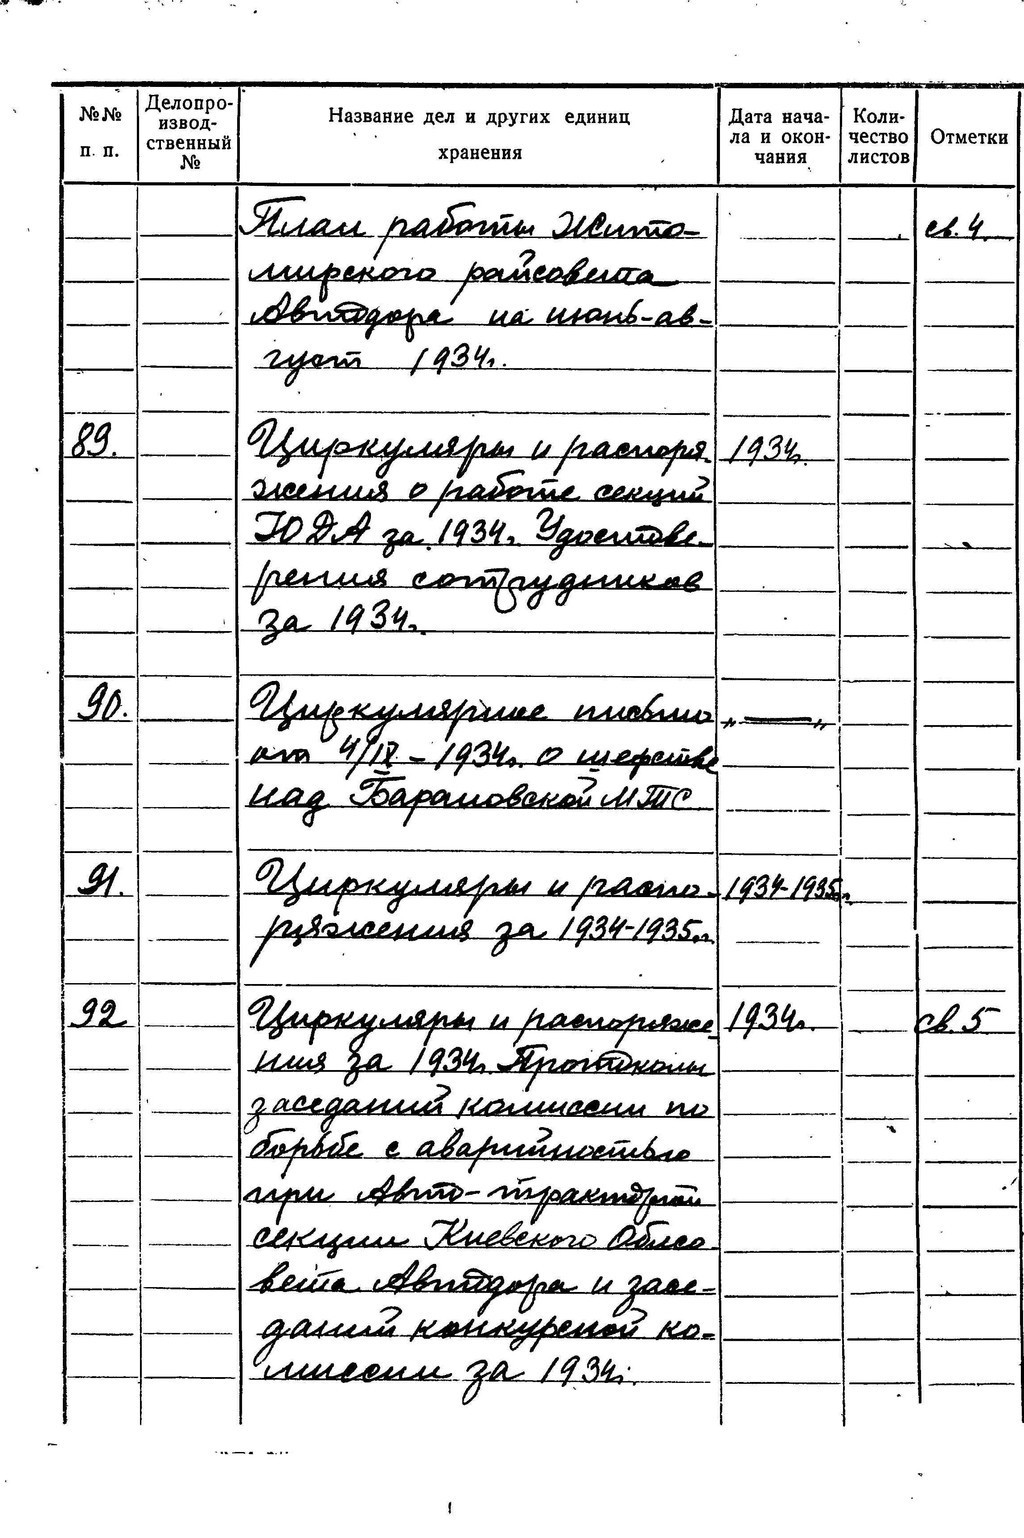 №№ п. п.
Делопро-
извод-
ственный
№
Название дел и других единиц
хранения
Дата нача-
ла и окон-
чания
Коли-
чество
листов
Отметки
План работы Жито- св. 4
мирского райсовета
Автодора на июнь-ав-
густ 1934г.
89. Циркуляры и распоря- 1934г.
жения о работе секций
ЮДА за 1934г. Удостове-
рения сотрудников
за 1934г.
90. Циркулярное письмо „ — „
от 4/IV - 1934г. о шефстве
над Барановской МТС
91. Циркуляры и распо- 1934-1935г.г.
ряжения за 1934-1935г.г.
92 Циркуляры и распоряже- 1934г. св. 5
ния за 1934г. Протоколы
заседаний комиссии по
борьбе с аварийностью
при Авто-тракторной
секции Киевского Облсо-
вета Автодора и засе-
даний конкурсной ко-
миссии за 1934г.